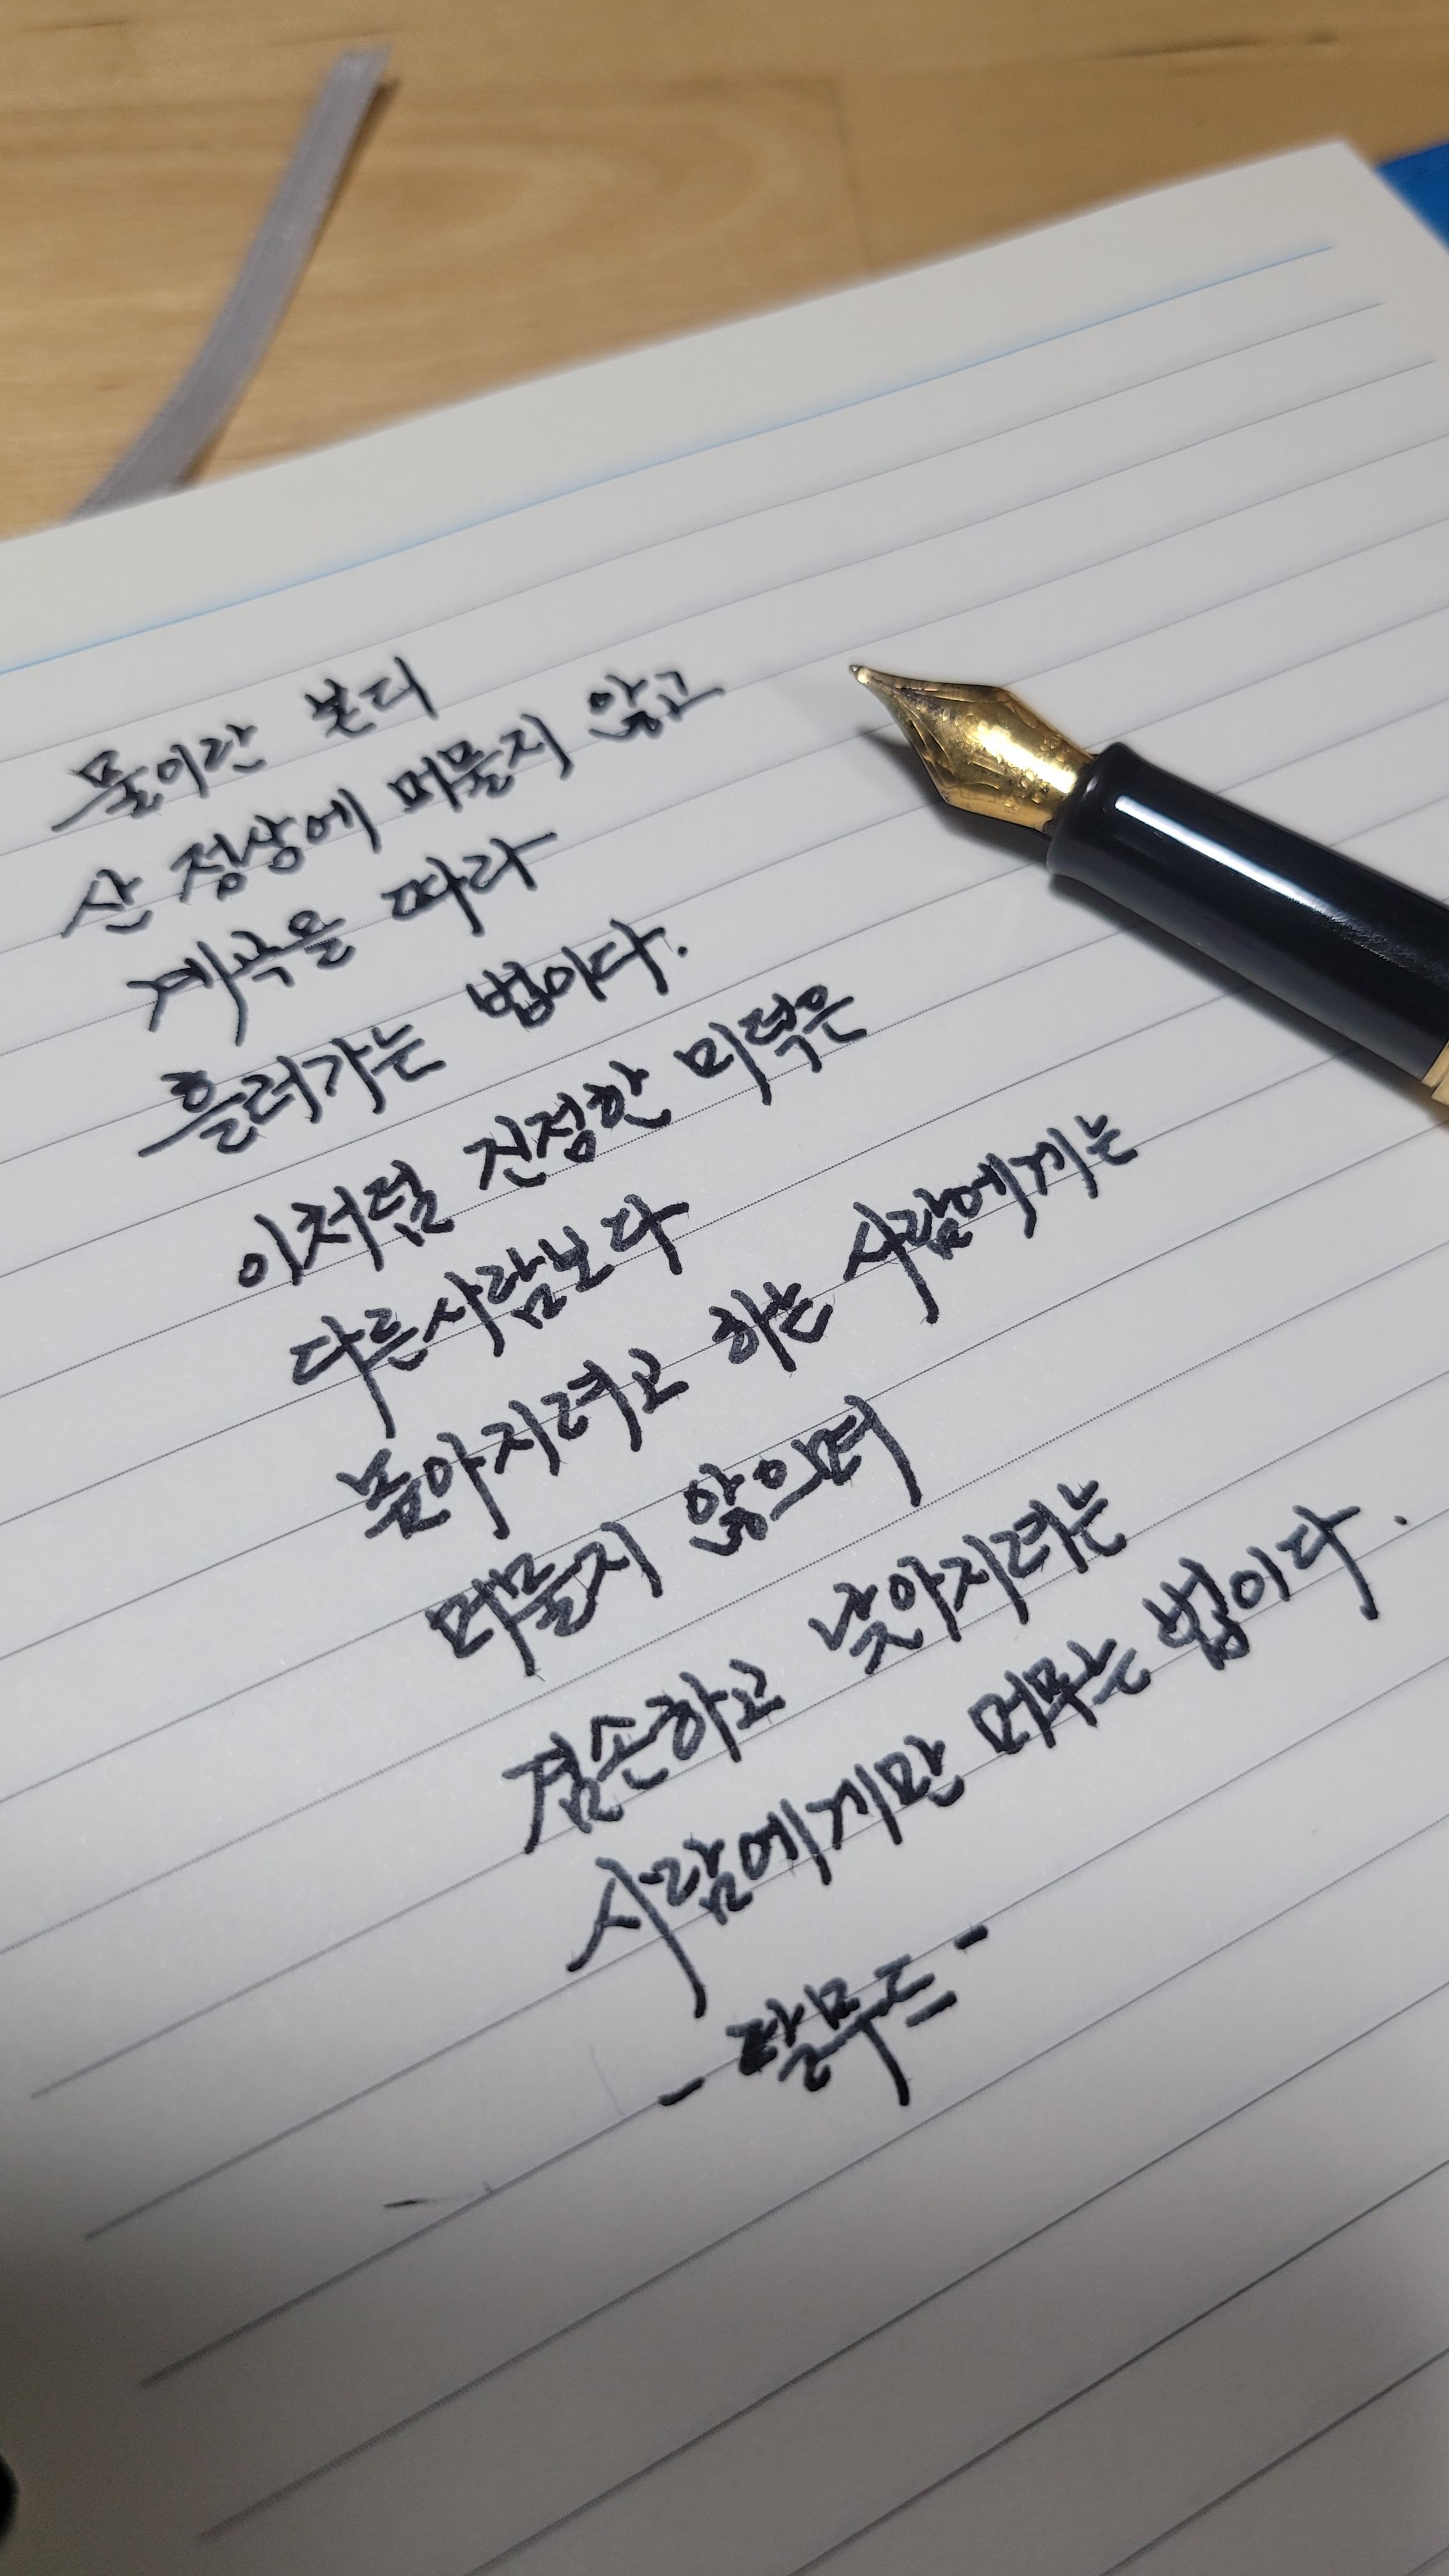 물이란 본디
산 정상에 머물지 않고
계곡을 따라
흘러가는 법이다.
이처럼 진정한 미덕은
다른사람보다
높아지려고 하는 사람에게는
머물지 않으며
겸손하고 낮아지려는
사람에게만 머무는 법이다.
- 탈무드 -